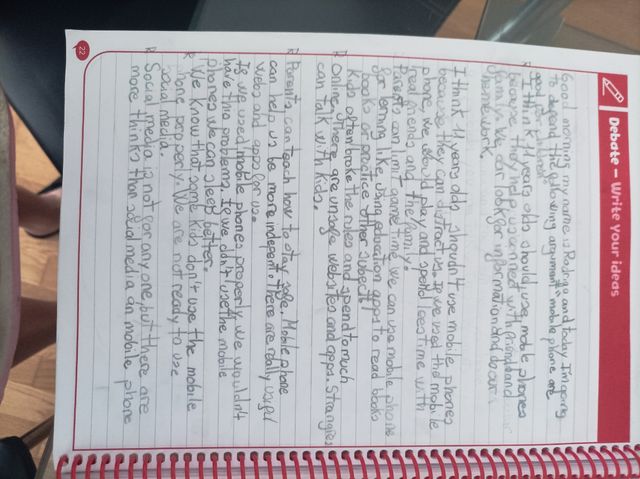 Debate – Write your ideas
Good morning my name is Rodrigo and today I'm going
to depend the following argument "mobile phone are
good for children"
R I think 11 years olds should use mobile phones
because they help us anned with friends and
family. We can look for information and do our
homework.
I think 11 years olds shouldn't use mobile phones
because they can distract us. If we used the mobile
phone, we would play and spend lees time with
real friends and the family.
R Parents can limit same time, we can use mobile phone
for lerning like, using education apps to read books
books or practice other subject.
Kids often broke the roles and spend to much
R Online, there are unsafe websites and apps. Strangies
can talk with kids.
R Parents can teach how to stay safe. Mobile phone
can help us be more indepent. There are really useful
webs and apps for use
If we used mobile phones properly, we wouldn't
have this problems. If we don't use the mobile
phones we can sleep better.
R We know that some kids don't use the mobile
phone properly. We are not ready to use
social media.
R Social media is not for any one, but there are
more thinks than social media in mobile phone
22